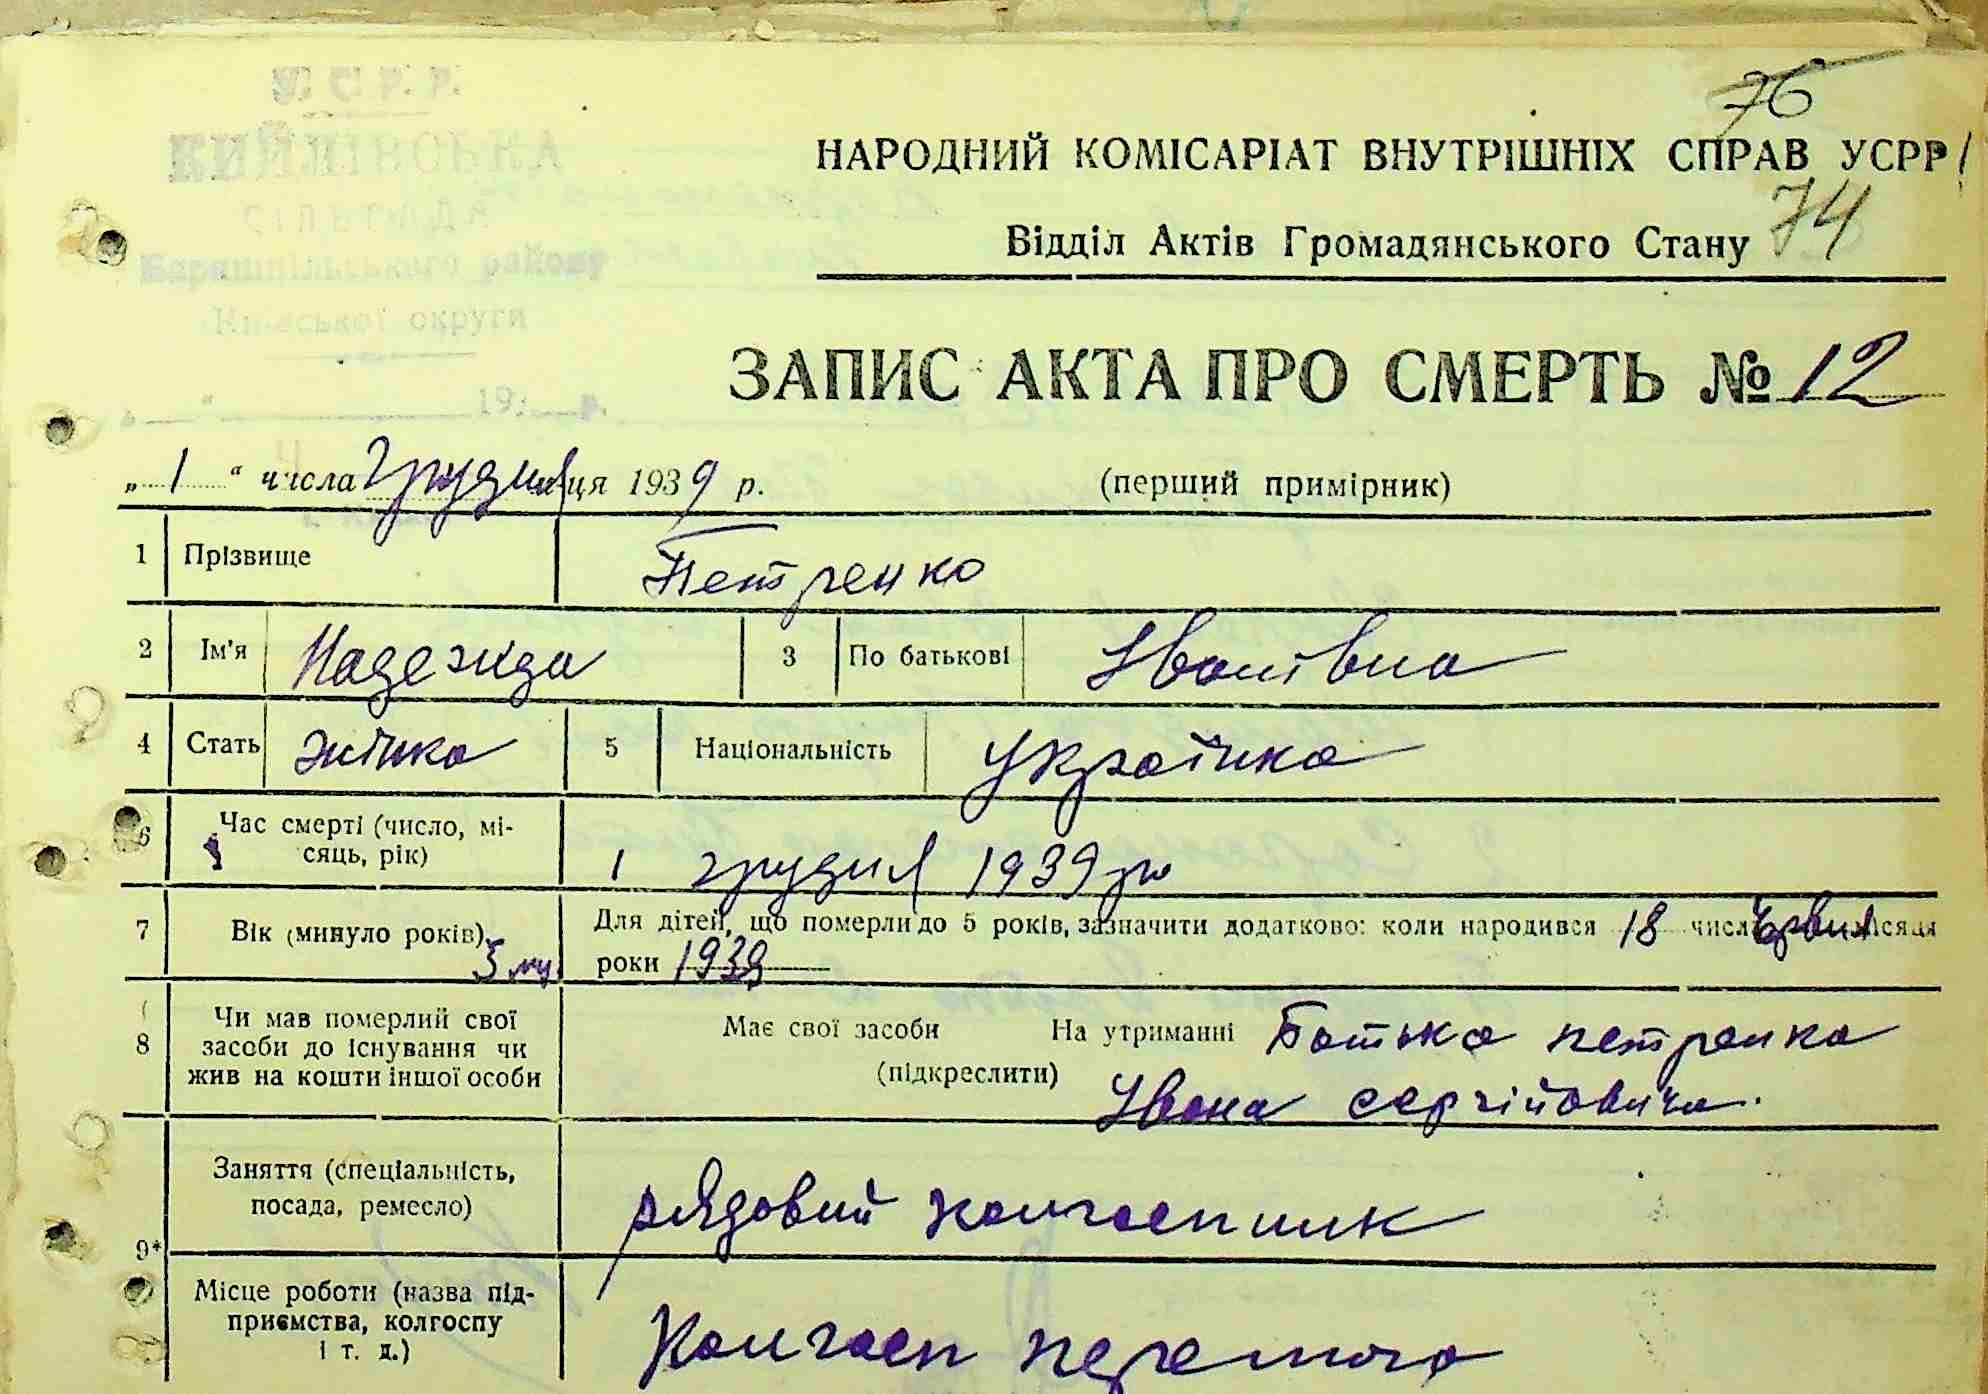 У. С. Р. Р.
КИЙЛІВСЬКА
СІЛЬРАДА
Баришпільського району
Київської округи
19 р.
76
НАРОДНИЙ КОМІСАРІАТ ВНУТРІШНІХ СПРАВ УСРР
Відділ Актів Громадянського Стану 74
ЗАПИС АКТА ПРО СМЕРТЬ № 12
„ 1 “ числа грудня ця 1939 р. (перший примірник)
1 Прізвище Петренко
2 Ім'я Надежда 3 По батькові Іванівна
4 Стать жінка 5 Національність Українка
6 Час смерті (число, мі-
сяць, рік) 1 грудня 1939 ро
7 Вік (минуло років) 5 мц. Для дітей, що померли до 5 років, зазначити додатково: коли народився 18 числ червня ісяця
роки 1939
8 Чи мав померлий свої
засоби до існування чи
жив на кошти іншої особи Має свої засоби На утриманні Батька петренка
(підкреслити) Івана сергійовича.
9* Заняття (спеціальність,
посада, ремесло) рядовий колгоспник
Місце роботи (назва під-
приємства, колгоспу
і т. д.) Колгосп перемога